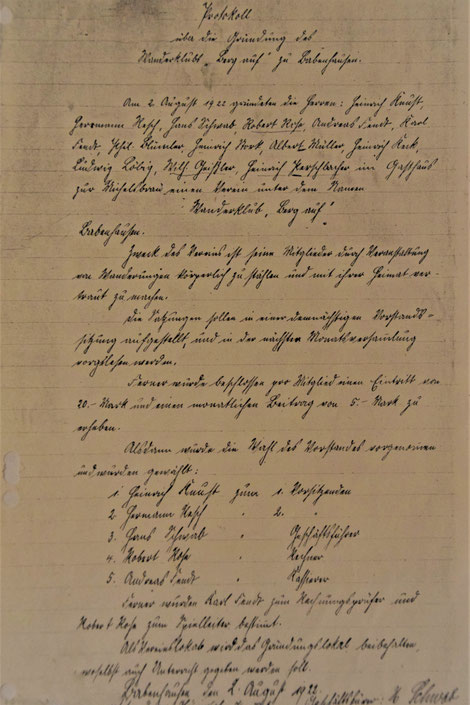 Protokoll
über die Gründung des
Wanderklubs „Berg auf" zu Babenhausen.
Am 2. August 1922 gründeten die Herren: Heinrich Knust,
Herrmann Resch, Hans Schwab, Robert Hose, Andreas Fendt, Karl
Fendt, Heinrich Albert Müller, Heinrich
Ludwig Geißler, Heinrich im Gasthaus
zur Michelsbräu, einen Verein unter dem Namen
Wanderklub „Berg auf"
Babenhausen.
Zweck des Vereins ist seine Mitglieder durch Veranstaltung
von Wanderungen körperlich zu stählen und mit ihrer Heimat ver-
traut zu machen.
Die Satzungen sollen in einer demnächstigen Vorstands-
sitzung aufgestellt, und in der nächsten Monatsversamlung
vorgelesen werden.
Ferner wurde beschlossen pro Mitglied einen Eintritt von
20.- Mark und einen monatlichen Beitrag von 5.- Mark zu
erheben.
Alsdann wurde die Wahl des Vorstandes vorgenomen
und wurden gewählt:
1. Heinrich Knust zum 1. Vorsitzenden
2. Hermann Resch " 2. "
3. Hans Schwab " Geschäftsführer
4. Robert Hose " Rechner
5. Andreas Fendt " Kassierer
Ferner wurden Karl Fendt zum Rechnungsprüfer und
Robert Hose zum Spielleiter bestimt.
Als Vereinslokal wird das Gründungslokal beibehalten,
woselbst auch Unterricht gegeben werden soll.
Babenhausen den 2. August 1922.
Geschäftsführer: H. Schwab